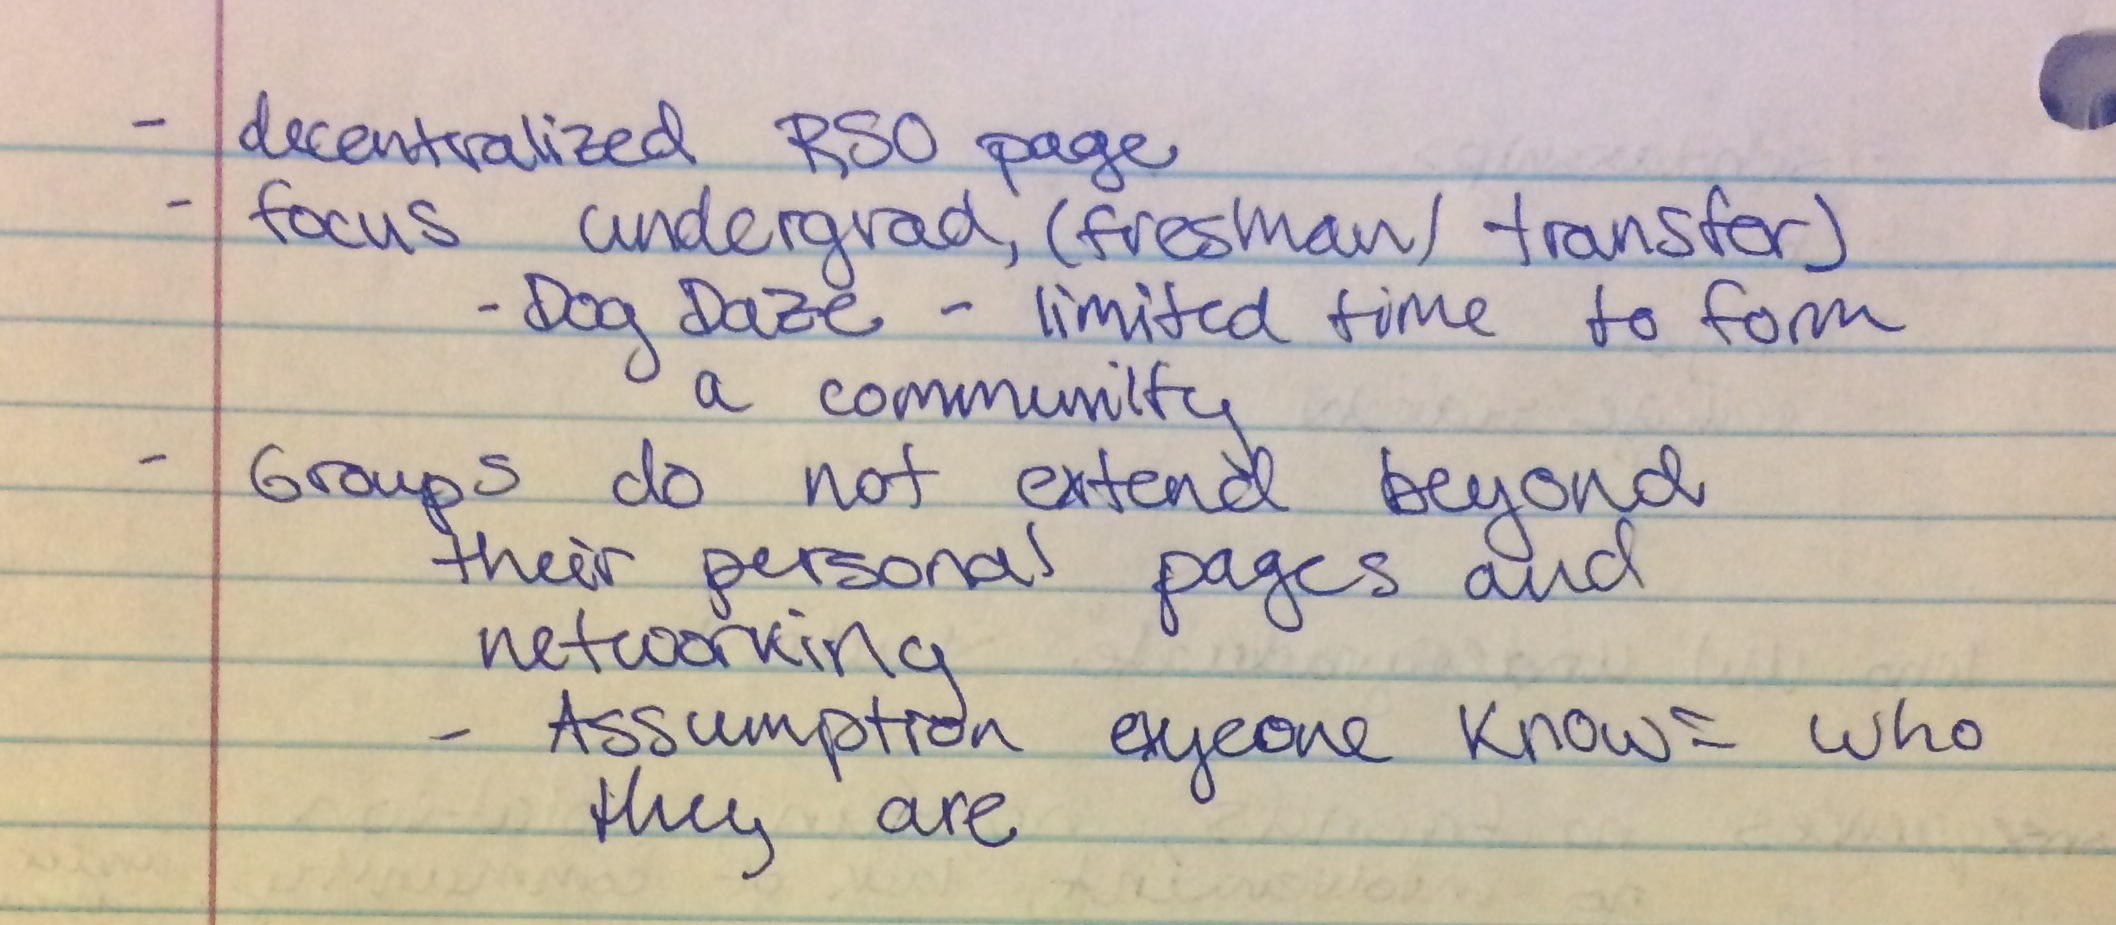 - decentralized RSO page
- focus undergrad, (freshman/ transfer)
- Dog Daze - limited time to form
a community
- Groups do not extend beyond
their personal pages and
networking
- Assumption know= who
they are